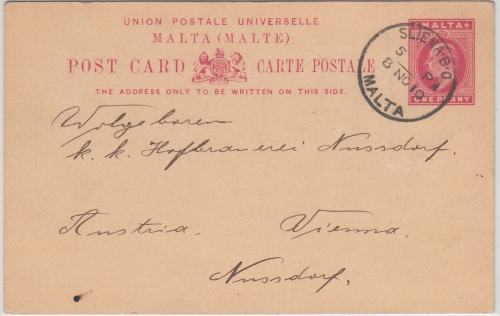 UNION POSTALE UNIVERSELLE
MALTA (MALTE)
POST CARD CARTE POSTALE
THE ADDRESS ONLY TO BE WRITTEN ON THIS SIDE.
MALTA
ONE PENNY
SLIEMA·B·O
5 PM
8 NO 10
MALTA
Wolgeboren
k. k. Hofbrauerei Nussdorf.
Austria. Vienna.
Nussdorf.